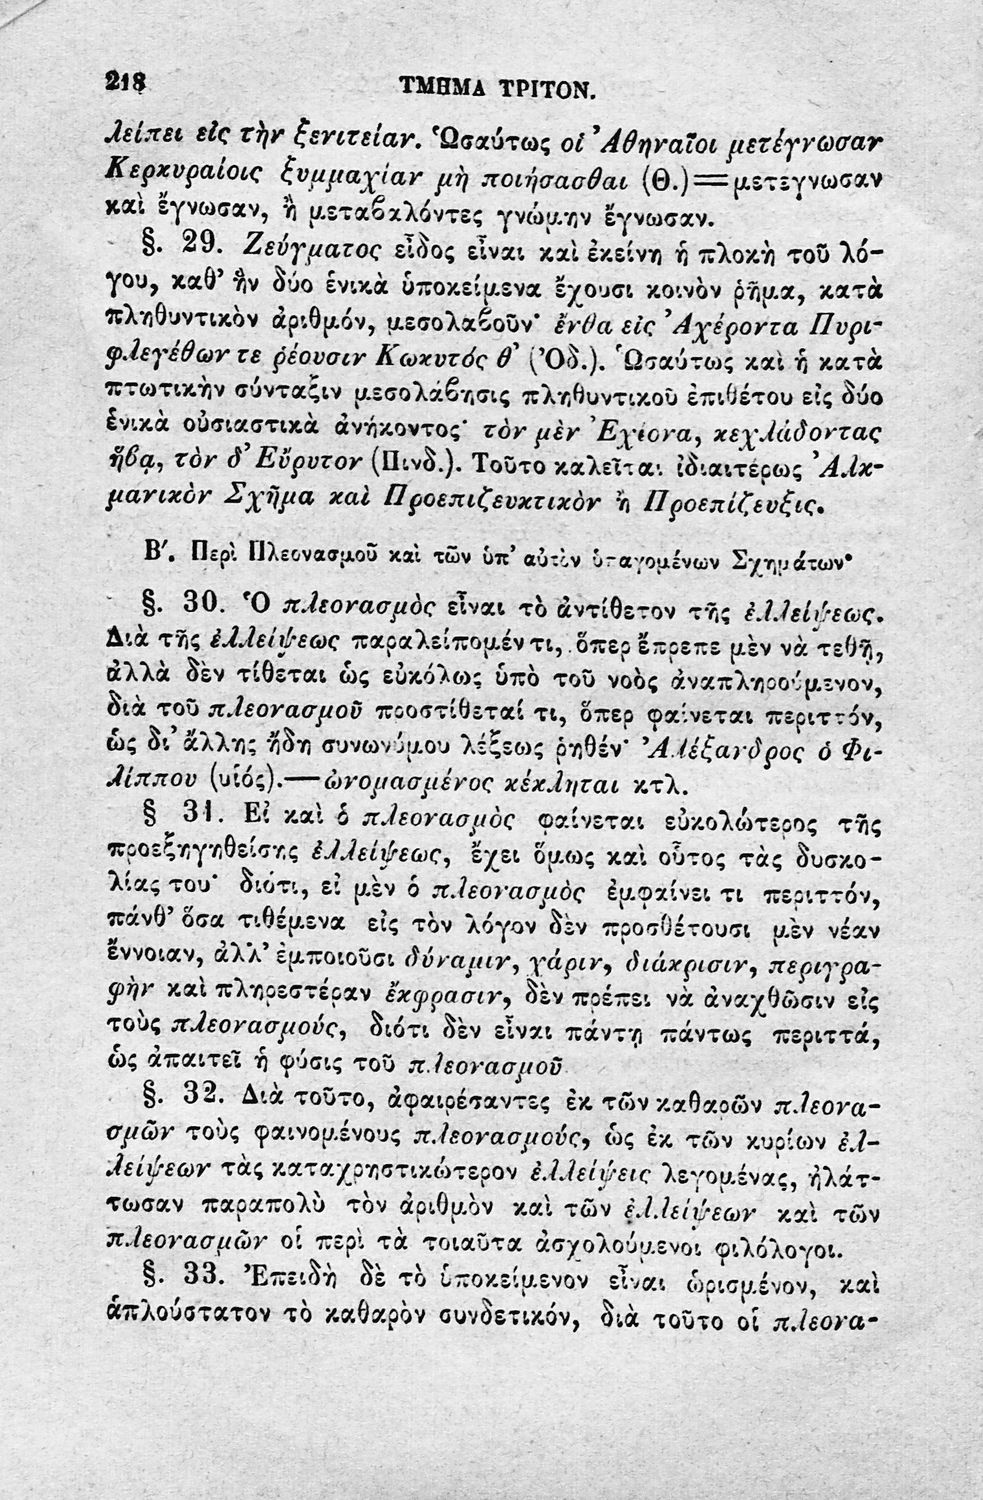 218 ΤΜΗΜΑ ΤΡΙΤΟΝ.
λείπει εἰς τὴν ξενιτείαν. Ὡσαύτως οἱ Ἀθηναῖοι μετέγνωσαν
Κερκυραίοις ξυμμαχίαν μὴ ποιήσασθαι (Θ.)=μετεγνωσαν
καὶ ἔγνωσαν, ἢ μεταβαλόντες γνώμην ἔγνωσαν.
§. 29. Ζεύγματος εἶδος εἶναι καὶ ἐκείνη ἡ πλοκὴ τοῦ λό-
γου, καθ' ἣν δύο ἑνικὰ ὑποκείμενα ἔχουσι κοινὸν ῥῆμα, κατὰ
πληθυντικὸν ἀριθμόν, μεσολαβοῦν· ἔνθα εἰς Ἀχέροντα Πυρι-
φλεγέθων τε ῥέουσιν Κωκυτός θ' (Ὀδ.). Ὡσαύτως καὶ ἡ κατὰ
πτωτικὴν σύνταξιν μεσολάβησις πληθυντικοῦ ἐπιθέτου εἰς δύο
ἑνικὰ οὐσιαστικὰ ἀνήκοντος· τὸν μὲν Ἐχίονα, κεχλάδοντας
ἥβᾳ, τὸν δ' Εὔρυτον (Πινδ.). Τοῦτο καλεῖται ἰδιαιτέρως Ἀλκ-
μανικὸν Σχῆμα καὶ Προεπιζευκτικὸν ἢ Προεπίζευξις.
Β′. Περὶ Πλεονασμοῦ καὶ τῶν ὑπ' αὐτὸν ὑπαγομένων Σχημάτων·
§. 30. Ὁ πλεονασμὸς εἶναι τὸ ἀντίθετον τῆς ἐλλείψεως.
Διὰ τῆς ἐλλείψεως παραλείπομέν τι, ὅπερ ἔπρεπε μὲν νὰ τεθῇ,
ἀλλὰ δὲν τίθεται ὡς εὐκόλως ὑπὸ τοῦ νοὸς ἀναπληρούμενον,
διὰ τοῦ πλεονασμοῦ προστίθεταί τι, ὅπερ φαίνεται περιττόν,
ὡς δι' ἄλλης ἤδη συνωνύμου λέξεως ῥηθέν· Ἀλέξανδρος ὁ Φι-
λίππου (υἱός).—ὠνομασμένος κέκληται κτλ.
§ 31. Εἰ καὶ ὁ πλεονασμὸς φαίνεται εὐκολώτερος τῆς
προεξηγηθείσης ἐλλείψεως, ἔχει ὅμως καὶ οὗτος τὰς δυσκο-
λίας του· διότι, εἰ μὲν ὁ πλεονασμὸς ἐμφαίνει τι περιττόν,
πάνθ' ὅσα τιθέμενα εἰς τὸν λόγον δὲν προσθέτουσι μὲν νέαν
ἔννοιαν, ἀλλ' ἐμποιοῦσι δύναμιν, χάριν, διάκρισιν, περιγρα-
φὴν καὶ πληρεστέραν ἔκφρασιν, δὲν πρέπει νὰ ἀναχθῶσιν εἰς
τοὺς πλεονασμούς, διότι δὲν εἶναι πάντῃ πάντως περιττά,
ὡς ἀπαιτεῖ ἡ φύσις τοῦ πλεονασμοῦ
§. 32. Διὰ τοῦτο, ἀφαιρέσαντες ἐκ τῶν καθαρῶν πλεονα-
σμῶν τοὺς φαινομένους πλεονασμούς, ὡς ἐκ τῶν κυρίων ἐλ-
λείψεων τὰς καταχρηστικώτερον ἐλλείψεις λεγομένας, ἠλάτ-
τωσαν παραπολὺ τὸν ἀριθμὸν καὶ τῶν ἐλλείψεων καὶ τῶν
πλεονασμῶν οἱ περὶ τὰ τοιαῦτα ἀσχολούμενοι φιλόλογοι.
§. 33. Ἐπειδὴ δὲ τὸ ὑποκείμενον εἶναι ὡρισμένον, καὶ
ἁπλούστατον τὸ καθαρὸν συνδετικόν, διὰ τοῦτο οἱ πλεονα-